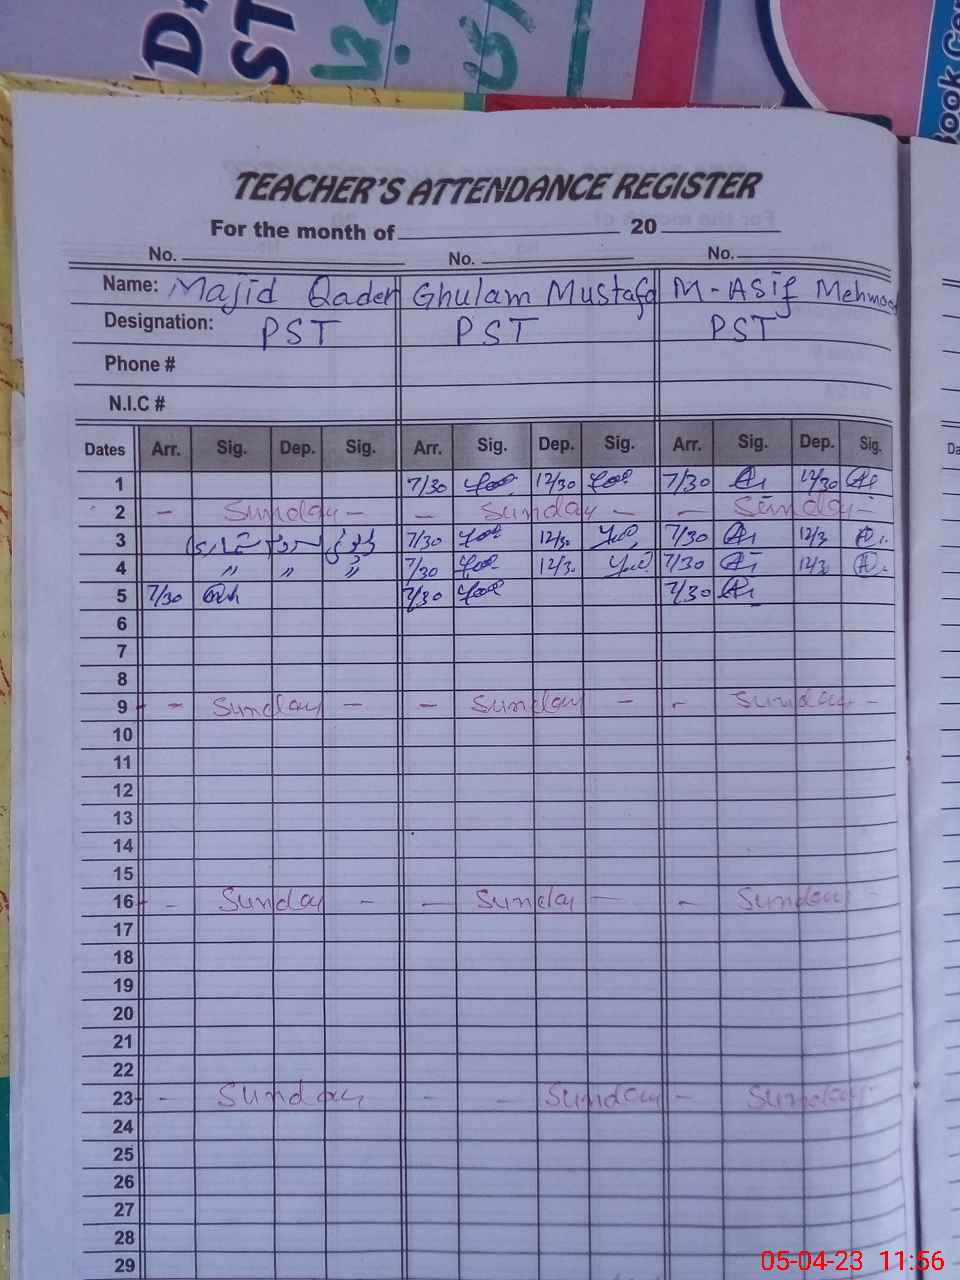 TEACHER'S ATTENDANCE REGISTER
For the month of 20
No. No. No.
Name: Majid Qader Ghulam Mustafa M-Asif Mehmood
Designation: PST PST PST
Phone #
N.I.C #
Dates Arr. Sig. Dep. Sig. Arr. Sig. Dep. Sig. Arr. Sig. Dep. Sig.
1 7/30 12/30 7/30 12/30
2 - Sunday - - Sunday - - Sunday -
3 7/30 12/30 7/30 12/3
4 " " " 7/30 12/30 7/30 12/3
5 7/30 7/30 7/30
6
7
8
9 - Sunday - - Sunday - - Sunday -
10
11
12
13
14
15
16 - Sunday - - Sunday - - Sunday -
17
18
19
20
21
22
23 - Sunday - - Sunday - Sunday
24
25
26
27
28
29
05-04-23 11:56